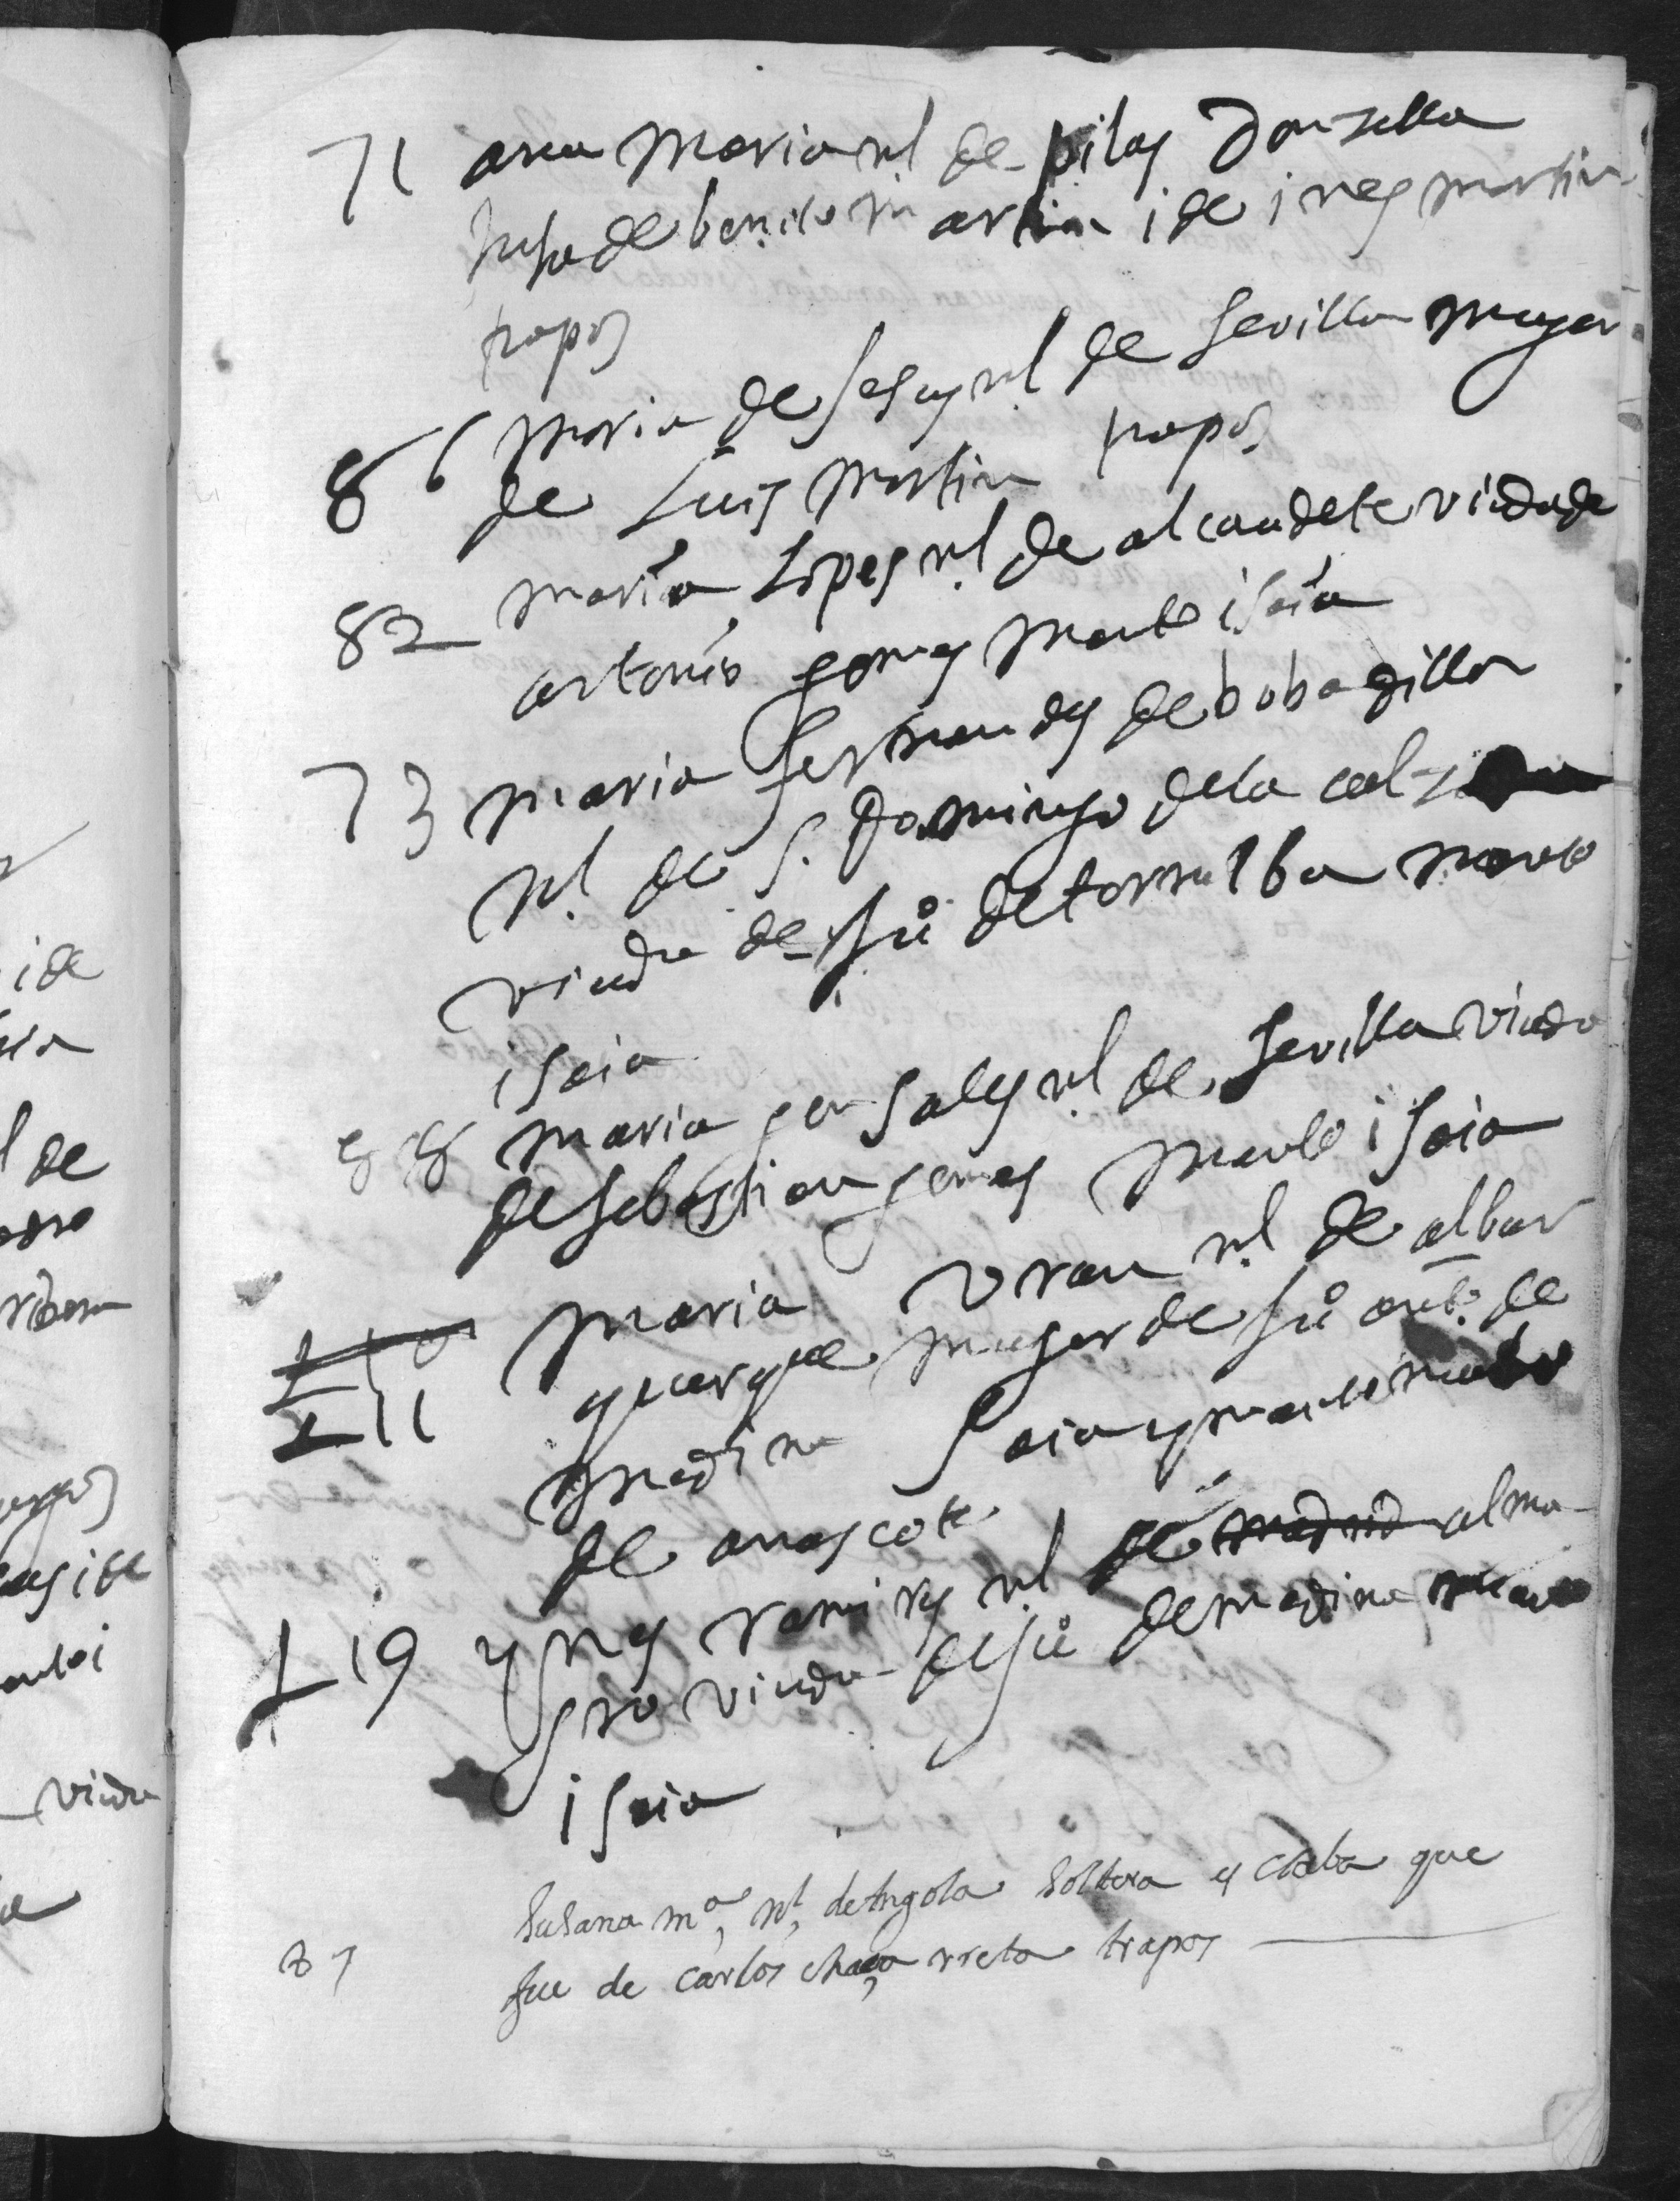 71 ana maria nl de pilas donzella
hija de benito martin i de i nes martin
trapos
86 maria de Jesus nl de sevilla muger
de Luis martin trapos
82 maria Lopes nl de alcaudete viuda de
antonio gomes manto i saia
73 maria fernandes de bobadilla
nl de S. domingo de la calzada
viuda de Ju° de torralba manto
i saia
88 maria gonsales nl de sevilla viuda
de sebastian gomes manto i saia
maria Vran nl de albur
11 querque muger de Ju° aut° de
medina saia y manto nuebo
de anascote
19 ynes ramires nl de madrid alma
gro viuda de Ju° de medina manto
i saia
Susana mª, nl, de Angola soltera esclaba que
87 fue de Carlos chaça rreta trapos
de
l de
viuda